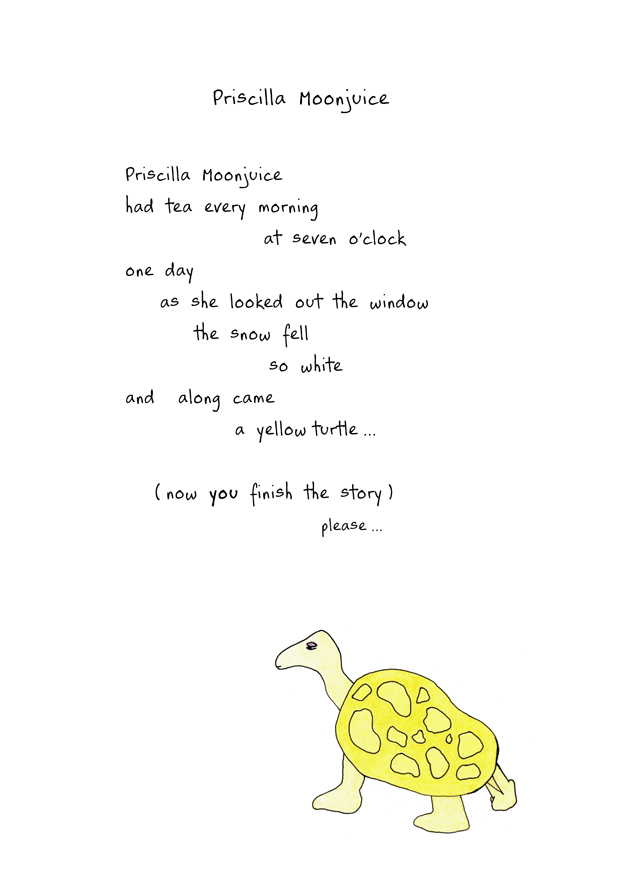 Priscilla Moonjuice
Priscilla Moonjuice
had tea every morning
at seven o'clock
one day
as she looked out the window
the snow fell
so white
and along came
a yellow turtle ...
( now you finish the story )
please ...